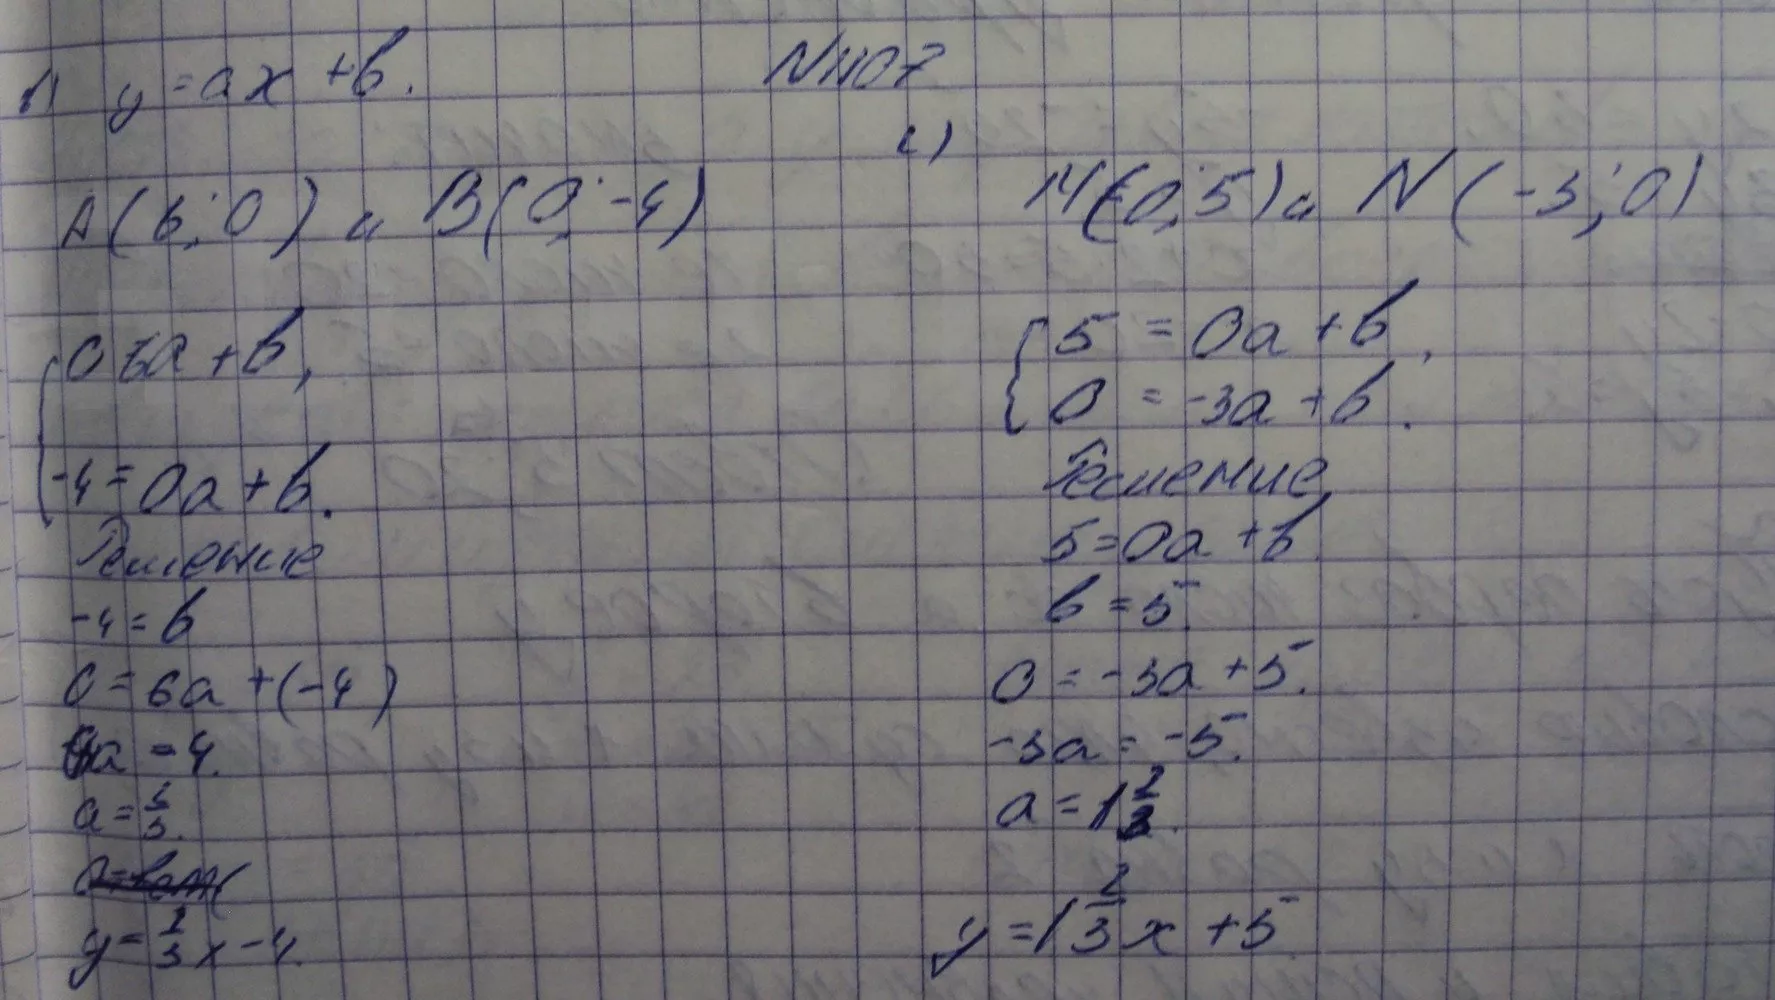 N1107
1) y = ax + b.
A(6; 0) и B(0; -4)
0 = 6a + b,
-4 = 0a + b.
Решение
-4 = b
0 = 6a + (-4)
6a = 4.
y = 2/3 x - 4.
2)
M(0; 5) и N(-3; 0)
5 = 0a + b,
0 = -3a + b.
Решение
5 = 0a + b
b = 5.
0 = -3a + 5.
-3a = -5.
a = 1 2/3.
y = 1 2/3 x + 5